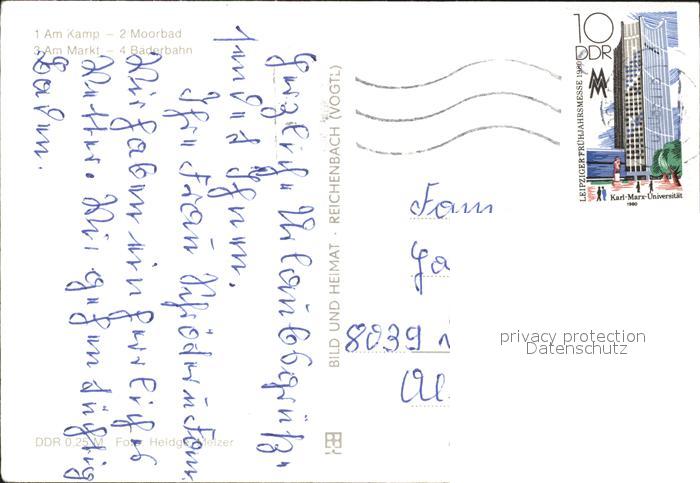 1 Am Kamp – 2 Moorbad
3 Am Markt – 4 Baderbahn
Herzliche Urlaubsgrüße
sendet Ihnen.
Ihre Frau Schröder u. Fam.
Wir haben ein herrliches
Wetter. Wir gehen tüchtig
Baden.
DDR 0,25 M Foto: Heidge, Melzer
BILD UND HEIMAT · REICHENBACH (VOGTL)
10
DDR
LEIPZIGER FRÜHJAHRSMESSE 1980
Karl-Marx-Universität
1980
Fam
8039
privacy protection
Datenschutz